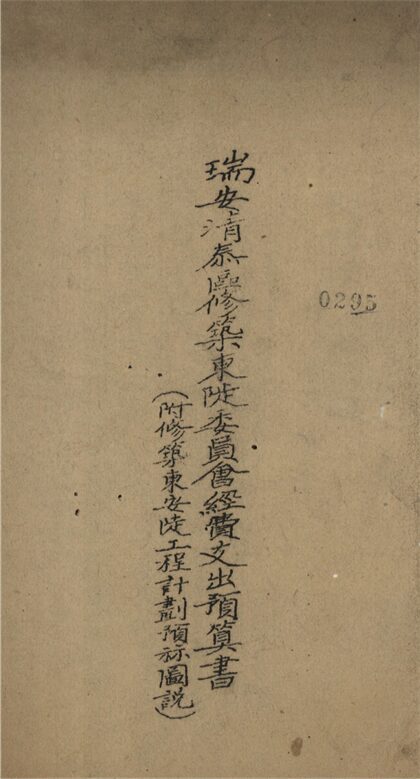 瑞安清泰區修築東陡委員會經費支出預算書
(附修築東安陡工程計劃預標圖說)
0295